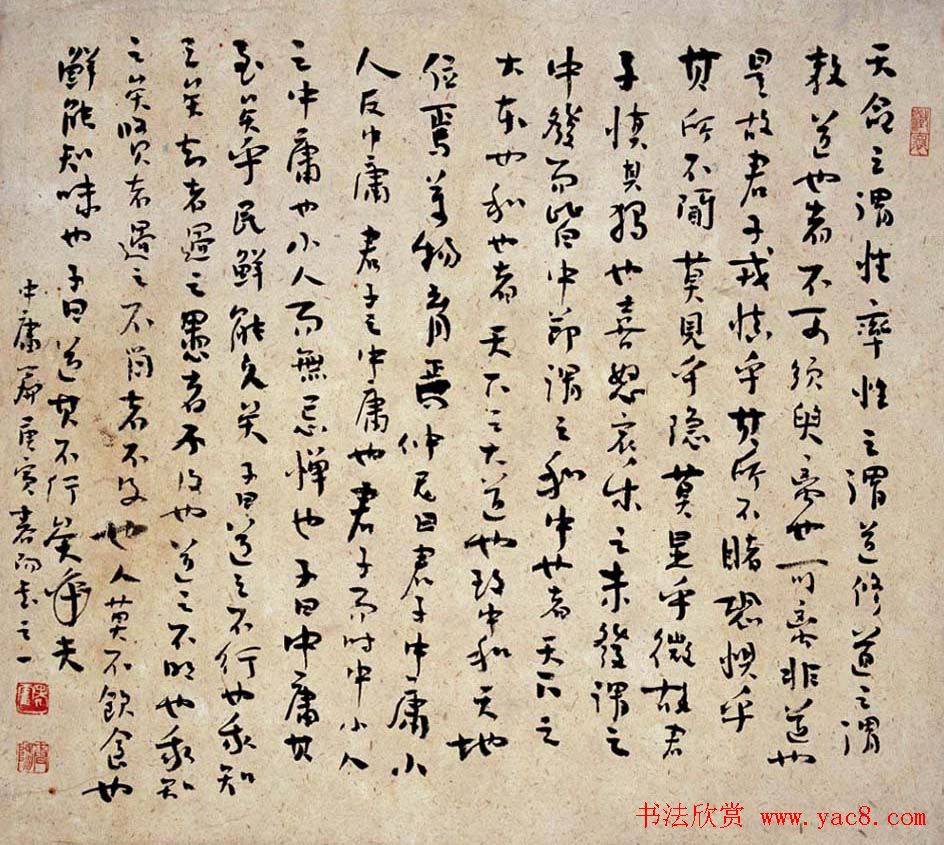 天命之謂性率性之謂道修道之謂
教道也者不可須臾离也可离非道也
是故君子戒慎乎其所不睹恐惧乎
其所不聞莫見乎隐莫显乎微故君
子慎其獨也喜怒哀乐之未發謂之
中發而皆中節謂之和中也者天下之
大本也和也者天下之大道也致中和天地
位焉萬物育焉仲尼曰君子中庸小
人反中庸君子之中庸也君子而时中小人
之中庸也小人而無忌惮也子曰中庸其
至矣乎民鮮能久矣子曰道之不行也我知
之矣知者過之愚者不及也道之不明也我知
之矣贤者過之不肖者不及也人莫不飲食也
鮮能知味也子曰道其不行矣乎夫
中庸
之一
书法欣赏 www.yac8.com